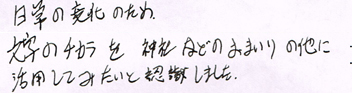 日常の変化のため
文字のチカラを神社などのおまいりの他に
活用してみたいと認識しました.